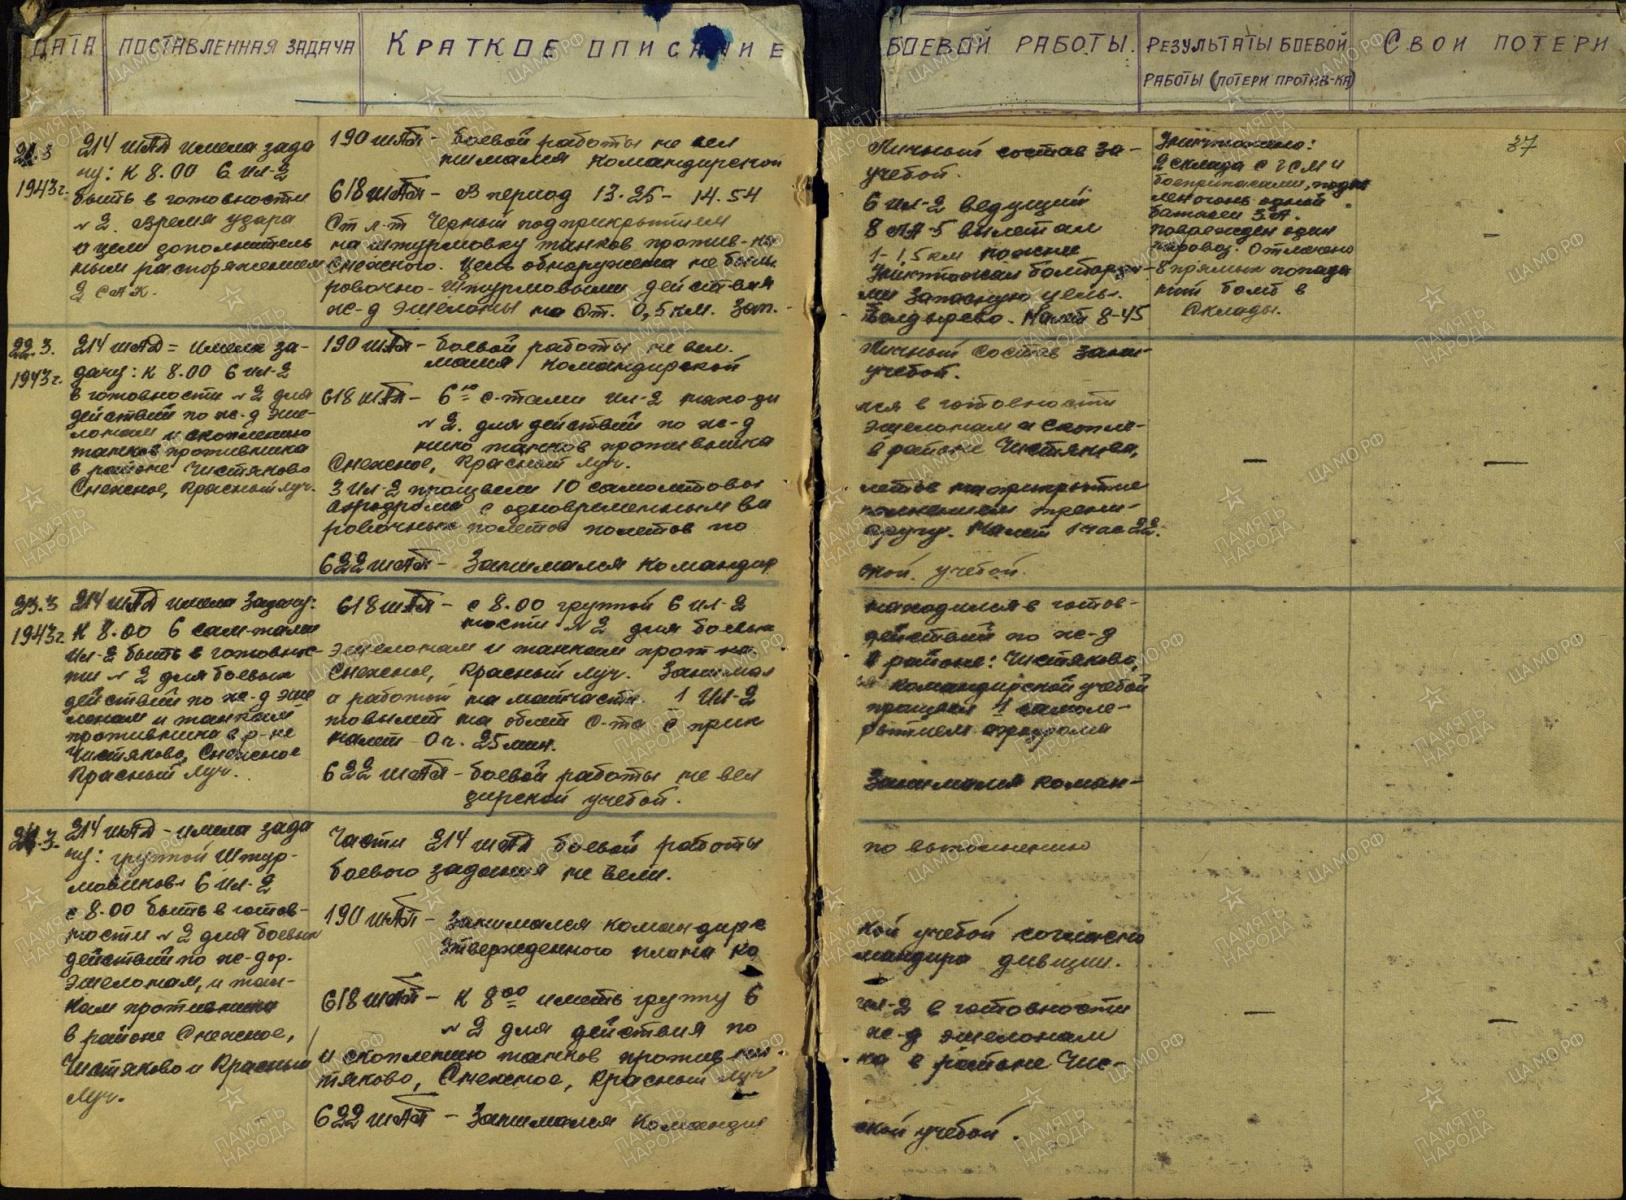 ДАТА ПОСТАВЛЕННАЯ ЗАДАЧА КРАТКОЕ ОПИСАНИЕ БОЕВОЙ РАБОТЫ. РЕЗУЛЬТАТЫ БОЕВОЙ РАБОТЫ (ПОТЕРИ ПРОТИВ-КА) СВОИ ПОТЕРИ
37
21.3
1943г.
214 шАД имела зада
чу: К 8.00 6 Ил-2
быть в готовности
№2. Время удара
и цели дополнитель
ным распоряжением
2 САК.
190 шАП - боевой работы не вел
нимался командирской
618 шАП - В период 13.25 - 14.54
Ст л-т Черный под прикрытием
на штурмовку танков против-ка
Снежного. Цель обнаружена не была.
ровочно-штурмовыми действия
ж-д эшелоны на ст. 0,5 км. Зап.-
Личный состав за-
учебой.
6 Ил-2 ведущий
8 ЛА-5 вылетал
1-1,5 км южнее
Уничтожал бомбарди-
ми запасную цель.
Болдырево. Налет 8-45
Уничтожено:
2 склада с гсм и
боеприпасами,
батареи ЗА.
поврежден один
паровоз. Отмечено
8 прямых попада
ний бомб в
склады.
–
22.3.
1943г.
214 шАД = имела за-
дачу: К 8.00 6 Ил-2
в готовности №2 для
действий по ж-д эше-
лонам и скоплению
танков противника
в районе Чистяково
Снежное, Красный луч.
190 шАП - боевой работы не вел.
мался командирской
618 шАП - 6ю с-тами Ил-2 находи
№2. для действий по ж-д
нию танков противника
Снежное, Красный луч.
3 Ил-2 произвели 10 самолетовы
аэродрома с одновременным вы
ровочных полетов полетов по
622 шАП - Занимался командир
Личный состав зани-
учебой.
лся в готовности
эшелонам и скопле-
в районе Чистяково,
летов на прикрытие
полнением трени-
кругу. Налет 1 час 22.
ской учебой.
–
–
23.3
1943г
214 шАД имела задачу:
К 8.00 6 сам-тами
Ил-2 быть в готовнос-
ти №2 для боевых
действий по ж-д эше
лонам и танкам
противника в р-не
Чистяково, Снежное
Красный луч.
618 шАП - с 8.00 группой 6 Ил-2
ности №2 для боевых
эшелонам и танкам прот-ка.
Снежное, Красный луч. Занимал
и работой на матчасти. 1 Ил-2
товылет на облет с-та с прик
налет - 0 ч. 25 мин.
622 шАП - боевой работы не вел
дирской учебой.
находился в готов-
действий по ж-д
в районе: Чистяково,
командирской учебой
произвел 1 самоле-
рытием аэродрома
Занимался коман-
24.3.
214 шАД - имела зада
чу: группой штур-
мовиков 6 Ил-2
с 8.00 быть в готов-
ности №2 для боевых
действий по ж-дор.
эшелонам, и тан-
кам противника
в районе Снежное,
Чистяково и Красный
Луч.
Части 214 шАД боевой работы
боевого задания не вели.
190 шАП - Занимался командирс
утвержденного плана ко
618 шАП - К 8⁰⁰ иметь группу 6
№2 для действия по
и скоплению танков против-ни-
тяково, Снежное, Красный луч
622 шАП - Занимался командир
по выполнению
кой учебой согласно
мандира дивизии.
Ил-2 в готовности
ж-д эшелонам
ка в районе Чис-
ской учебой.
–
–
–
ПАМЯТЬ НАРОДА
ЦАМО.РФ